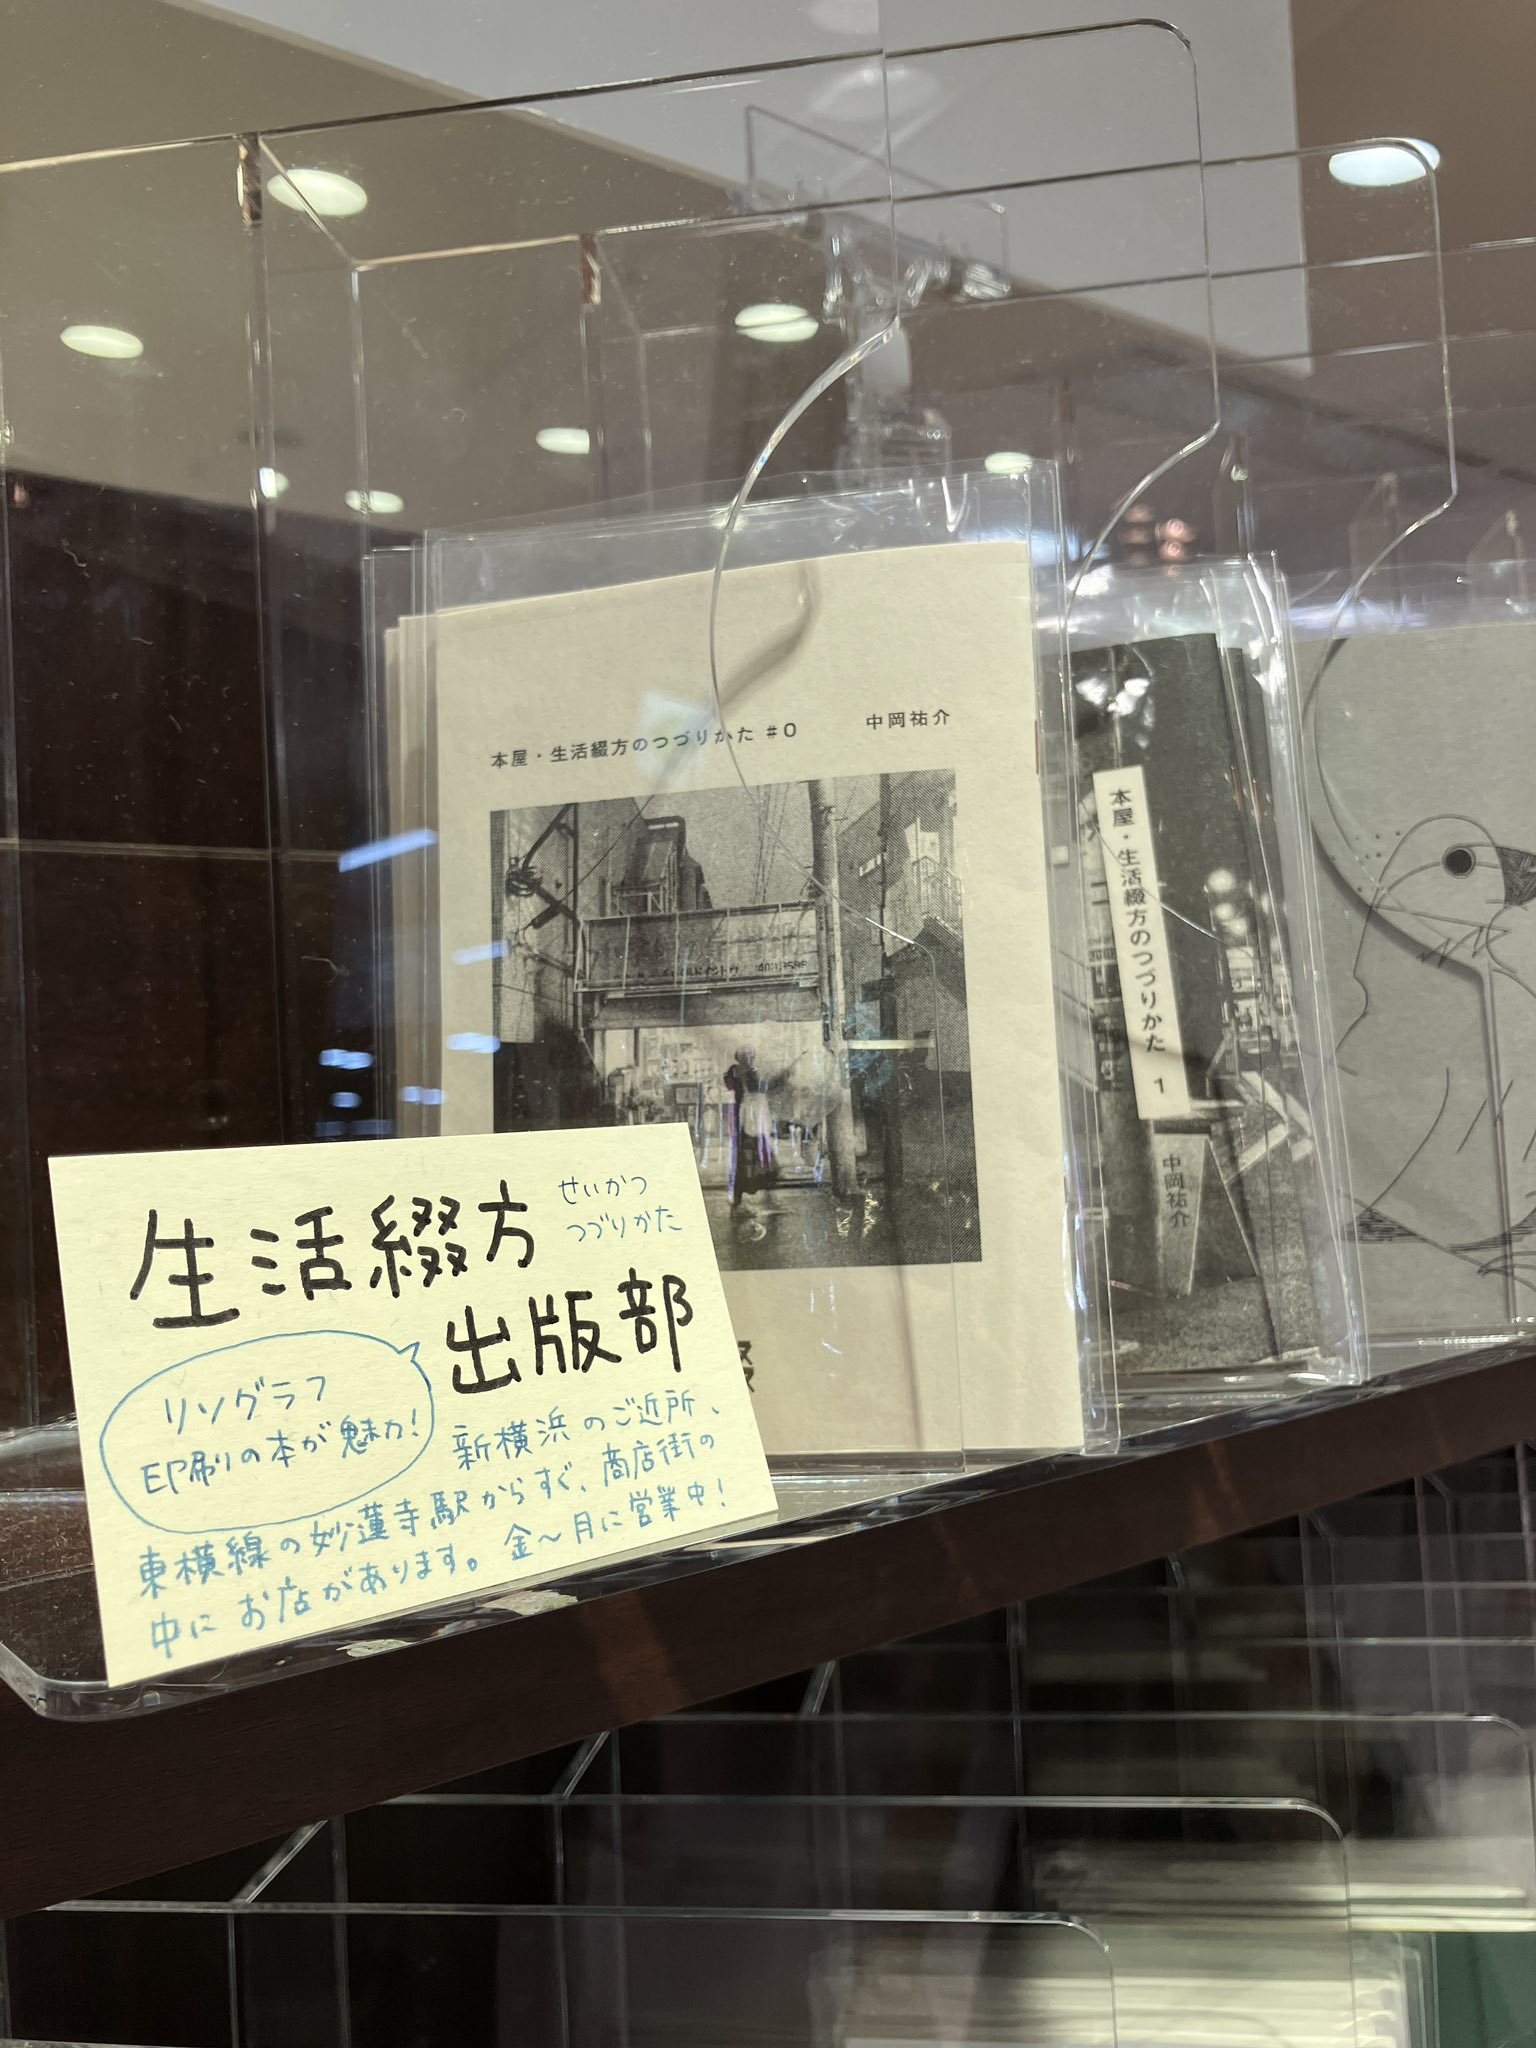 本屋・生活綴方のつづりかた #0
中岡祐介
本屋・生活綴方のつづりかた 1
中岡祐介
生活綴方
せいかつ
つづりかた
出版部
リソグラフ
印刷の本が魅力!
新横浜のご近所、
東横線の妙蓮寺駅からすぐ、商店街の
中にお店があります。金〜月に営業中!